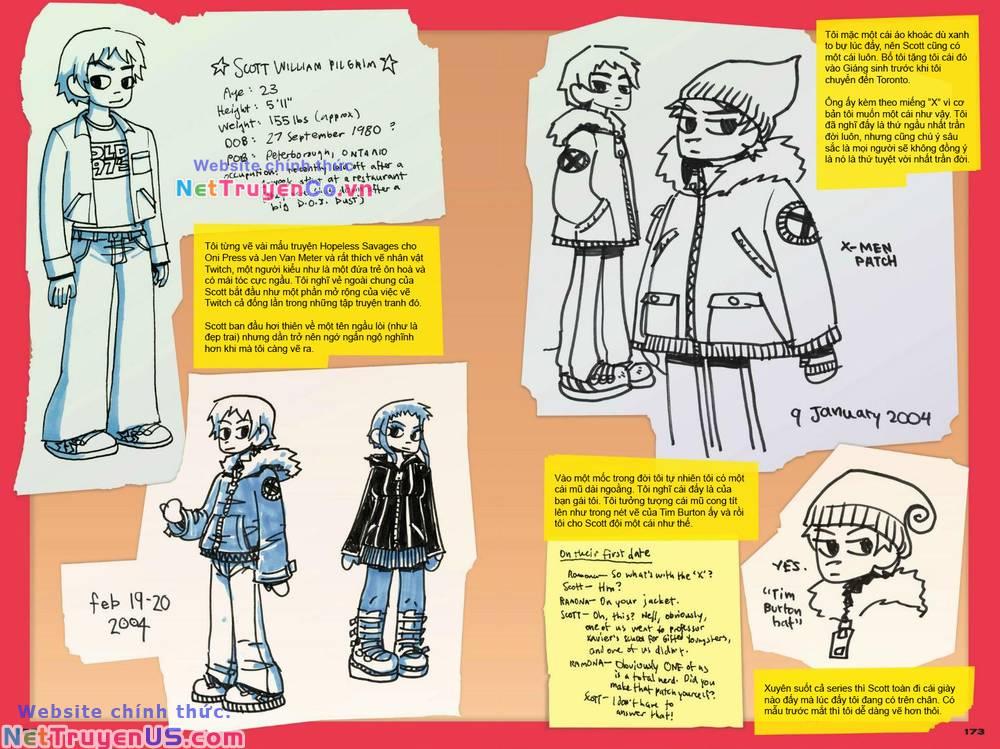 ☆ SCOTT WILLIAM PILGRIM ☆
Age: 23
Height: 5'11"
Weight: 155 lbs (approx)
DOB: 27 September 1980 ?
POB: Peterborough, ONTARIO
occupation: recently laid off after a
at a restaurant
after a
big D.O.J. bust)
Website chính thức.
NetTruyenCo.vn
Tôi từng vẽ vài mẩu truyện Hopeless Savages cho
Oni Press và Jen Van Meter và rất thích vẽ nhân vật
Twitch, một người kiểu như là một đứa trẻ ôn hoà và
có mái tóc cực ngầu. Tôi nghĩ vẻ ngoài chung của
Scott bắt đầu như một phần mở rộng của việc vẽ
Twitch cả đống lần trong những tập truyện tranh đó.
Scott ban đầu hơi thiên về một tên ngầu lòi (như là
đẹp trai) nhưng dần trở nên ngớ ngẩn ngộ nghĩnh
hơn khi mà tôi càng vẽ ra.
OLD
972
Tôi mặc một cái áo khoác dù xanh
to bự lúc đấy, nên Scott cũng có
một cái luôn. Bố tôi tặng tôi cái đó
vào Giáng sinh trước khi tôi
chuyển đến Toronto.
Ông ấy kèm theo miếng "X" vì cơ
bản tôi muốn một cái như vậy. Tôi
đã nghĩ đấy là thứ ngầu nhất trần
đời luôn, nhưng cũng chú ý sâu
sắc là mọi người sẽ không đồng ý
là nó là thứ tuyệt vời nhất trần đời.
X-MEN
PATCH
9 January 2004
feb 19-20
2004
Vào một mốc trong đời tôi tự nhiên tôi có một
cái mũ dài ngoằng. Tôi nghĩ cái đấy là của
bạn gái tôi. Tôi tưởng tượng cái mũ cong tít
lên như trong nét vẽ của Tim Burton ấy và rồi
tôi cho Scott đội một cái như thế.
On their first date
Ramona— So what's with the 'X'?
Scott— Hm?
RAMONA— On your jacket.
SCOTT— Oh, this? Well, obviously,
one of us went to professor
Xavier's school for Gifted Youngsters,
and one of us didn't.
RAMONA— Obviously ONE of us
is a total nerd. Did you
make that patch yourself?
SCOTT— I don't have to
answer that!
YES.
"Tim
Burton
hat"
Xuyên suốt cả series thì Scott toàn đi cái giày
nào đấy mà lúc đấy tôi đang có trên chân. Có
mẫu trước mắt thì tôi dễ dàng vẽ hơn thôi.
Website chính thức.
NetTruyenUS.com
173